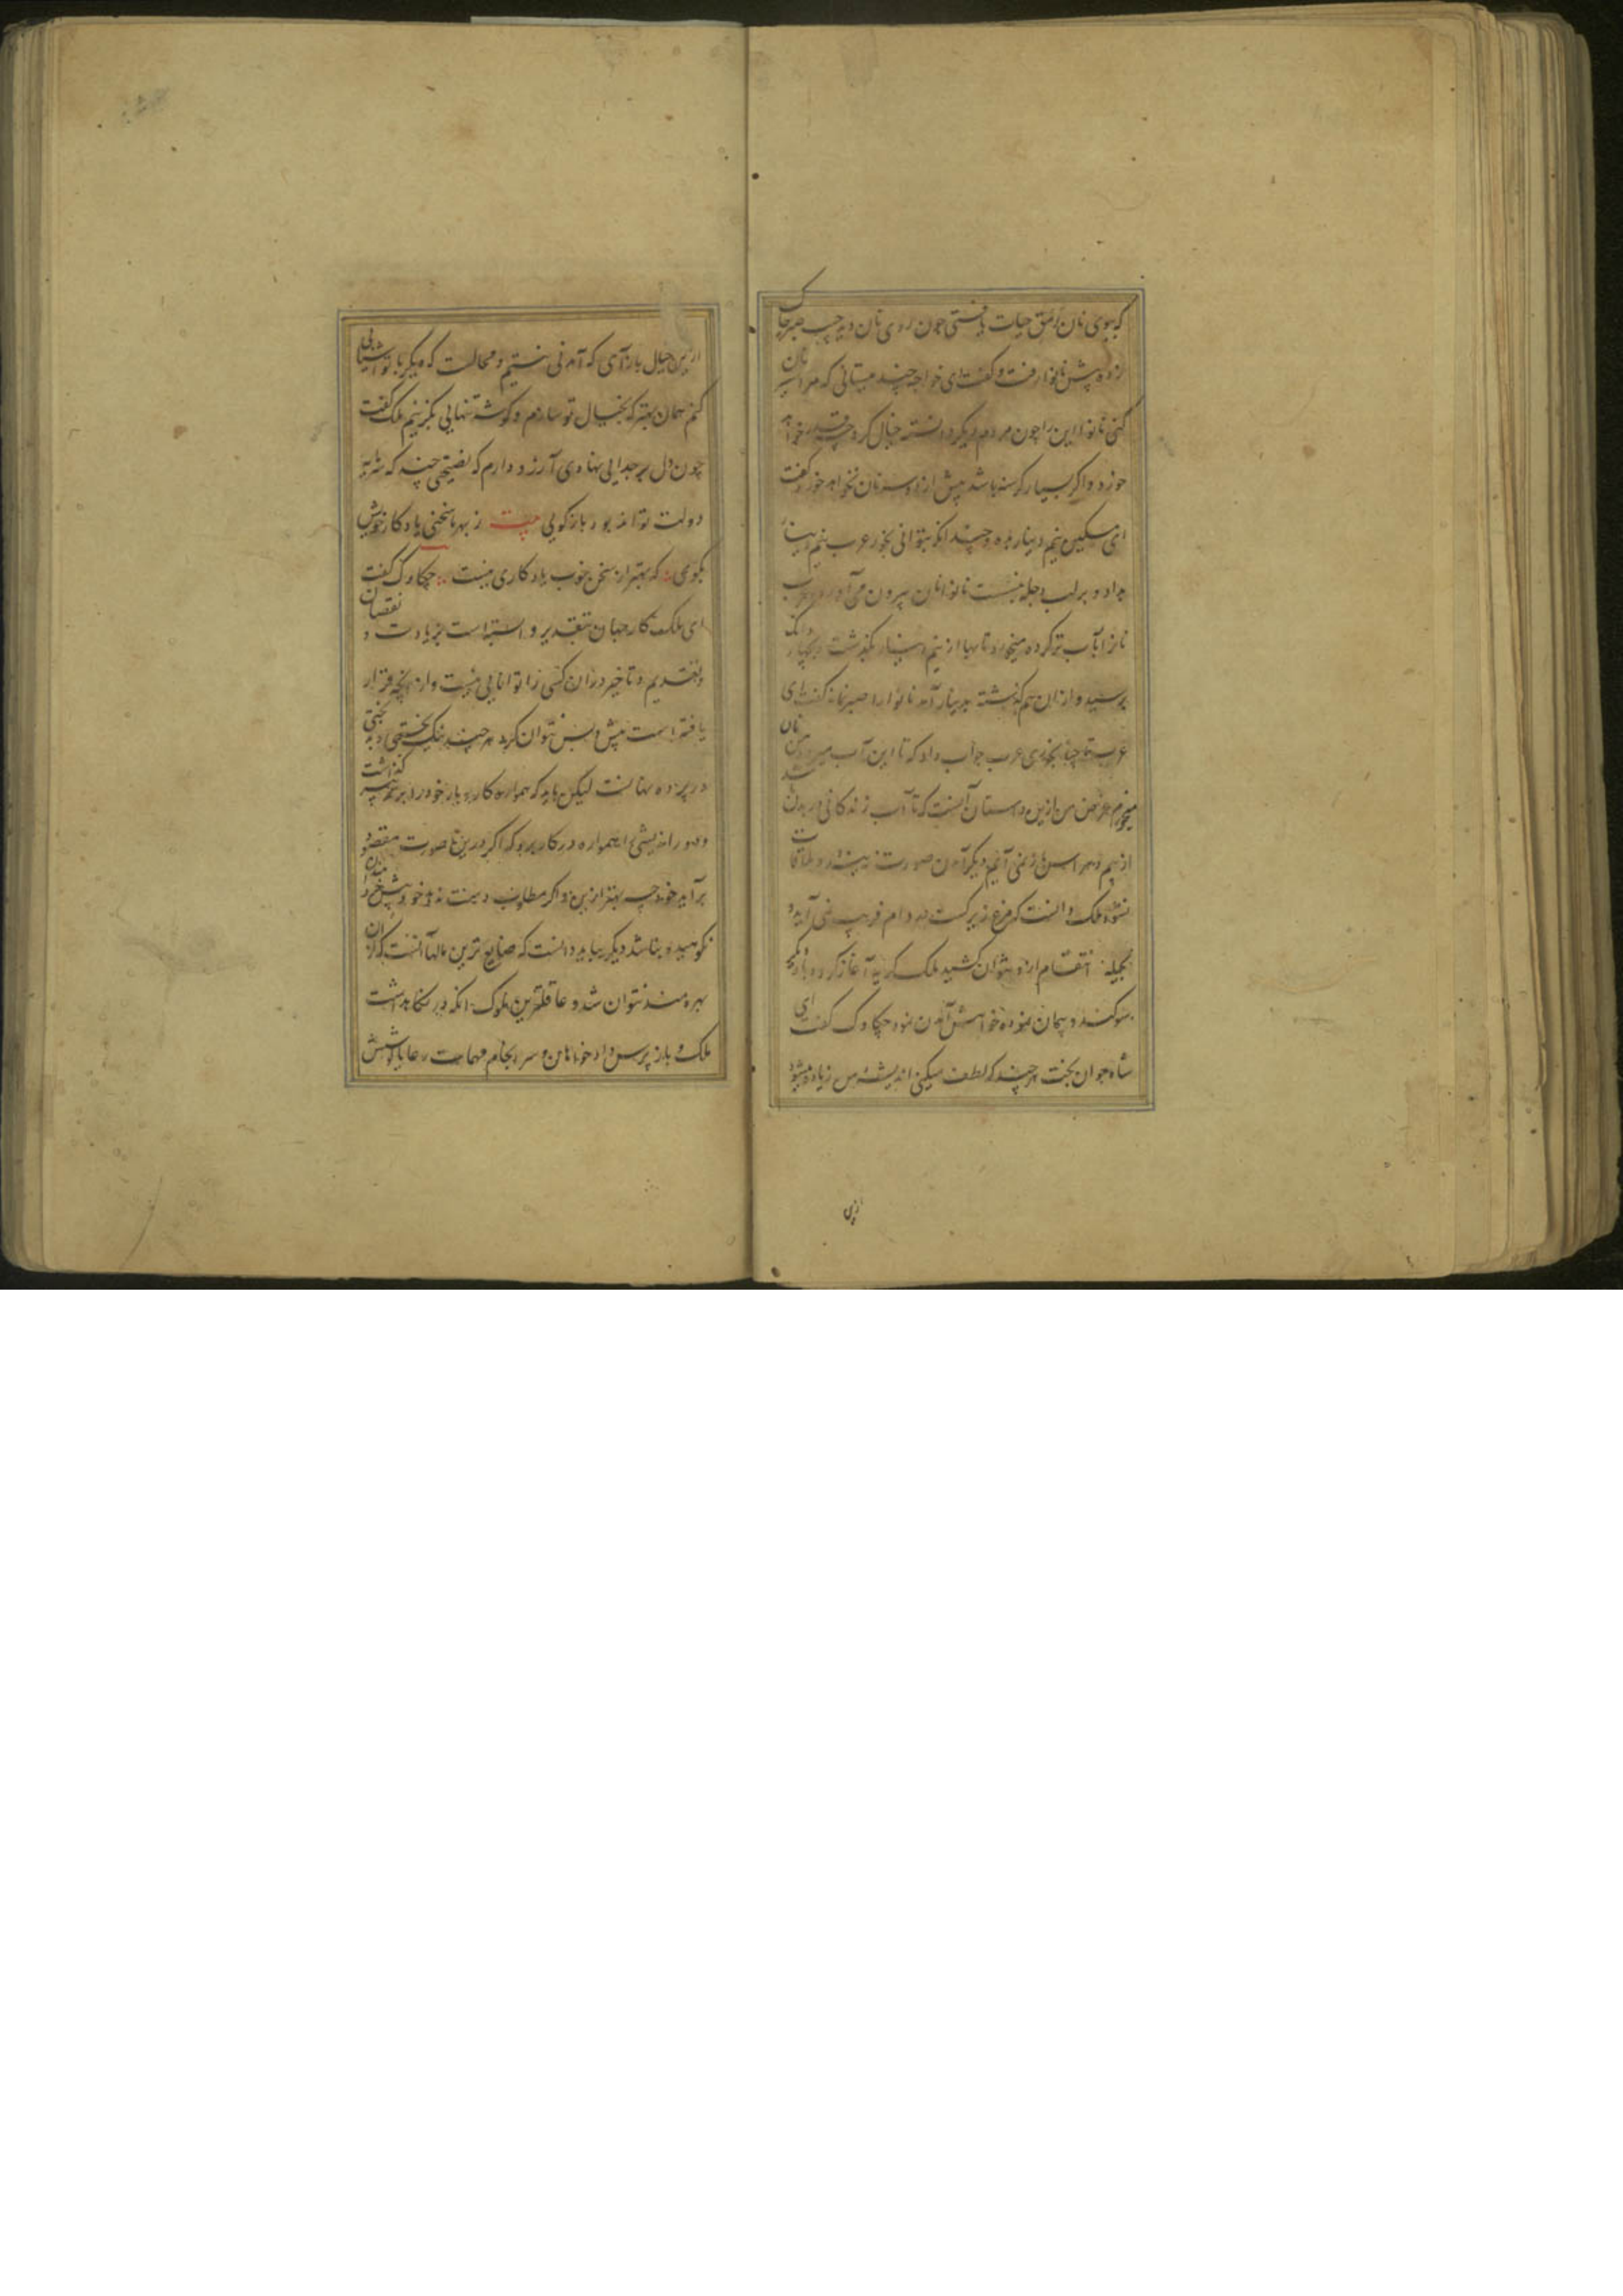 که ببوی نان رمق حیات یافتی چون روی نان دید جیب صبر چاک
زده پیش نانوا رفت و گفت ای خواجه چند میستانی که مرا سیر نان
کنی نانوا این را چون مردم دیگر دانسته خیال کرد چه قدر خواهد
خورد و اگر بسیار گرسنه باشد بیش از دو سه نان نخواهد خورد گفت
ای مسکین نیم دینار بده و چندانکه بتوانی بخور عرب نیم دینار
بداد و بر لب دجله بنشست نانوا نان بیرون می آورد و عرب
نانرا بآب تر کرده میخورد تا بها از نیم دینار بگذشت و بچهار دانگ
برسید و از ان هم گذشته بدینار آمد نانوا را صبر نماند گفت ای
عرب تا چند نان بخوری عرب جواب داد که تا این آب میرود من نان
میخورم غرض من ازین داستان آنست که تا آب زندگانی در بدن باشد
از بیم و هراس باز نمی آیم دیگر آمدن صورت نه بندد و ملاقات
نشود ملک دانست که مرغ زیرکست بدام فریب نمی آید و
بحیله انتقام ازو نتوان کشید ملک گریه آغاز کرد و بار دیگر
سوگند و پیمان نموده خواهش آمدن نمود چکاوک گفت ای
شاه جوان بخت هر چند که لطف میکنی اندیشه من زیاده میشود
ازین
ازین خیال باز آی که آمدنی نیستم و محالست که دیگر با تو آشنایی
کنم همان بهتر که بخیال تو سازم و گوشه تنهایی بگزینم ملک گفت
چون دل بر جدایی نهادی آرزو دارم که نصیحتی چند که سرمایه
دولت تواند بود باز گویی بیت ز بهر ما سخنی یادگار خویش
بگوی که بهتر از سخن خوب یادگاری نیست چکاوک گفت
ای ملک کار جهان بتقدیر وابسته است بزیادت و نقصان
و تقدیم و تاخیر دران کسی را توانایی نیست و از انچه قرار
یافته است پیش و پس نتوان کرد هر چند نیک بختی و بد بختی
در پرده نهانست لیکن باید که همواره کار و بار خود را بر تدبیر گذاشت
و دور اندیشی را همواره در کار برد که اگر درین صورت مقصود
برآید خود چه بهتر ازین و اگر مطلب دست ندهد خود پیش خردمندان
نکوهیده نباشد دیگر بباید دانست که ضایع ترین مالها آنست که از ان
بهره مند نتوان شد و عاقلترین ملوک انکه در نگاهداشت
ملک و باز پرس دادخواهان و سر انجام مهمات رعایا کوشش